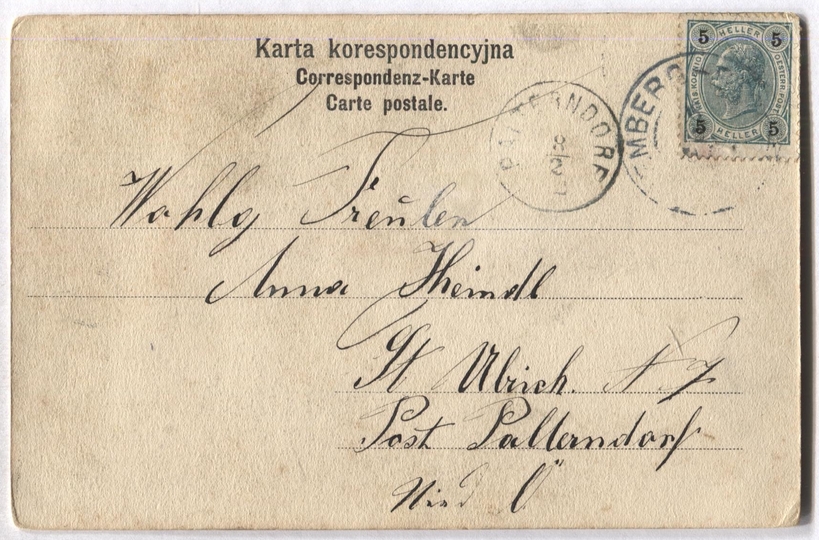 Karta korespondencyjna
Correspondenz-Karte
Carte postale.
5 HELLER 5
KAIS. KOENIG. OESTERR. POST
5 HELLER 5
MBERG
PALTERNDORF
8/2
Wohlg Freulen
Anna Heindl
St Ulrich. N
Post Palterndorf
Nied Ö